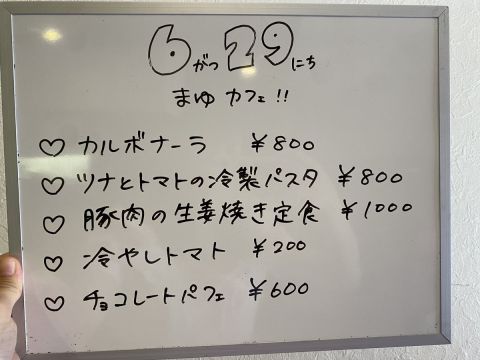 6がつ29にち
まゆ カフェ!!
♡ カルボナーラ ¥800
♡ ツナとトマトの冷製パスタ ¥800
♡ 豚肉の生姜焼き定食 ¥1000
♡ 冷やしトマト ¥200
♡ チョコレートパフェ ¥600